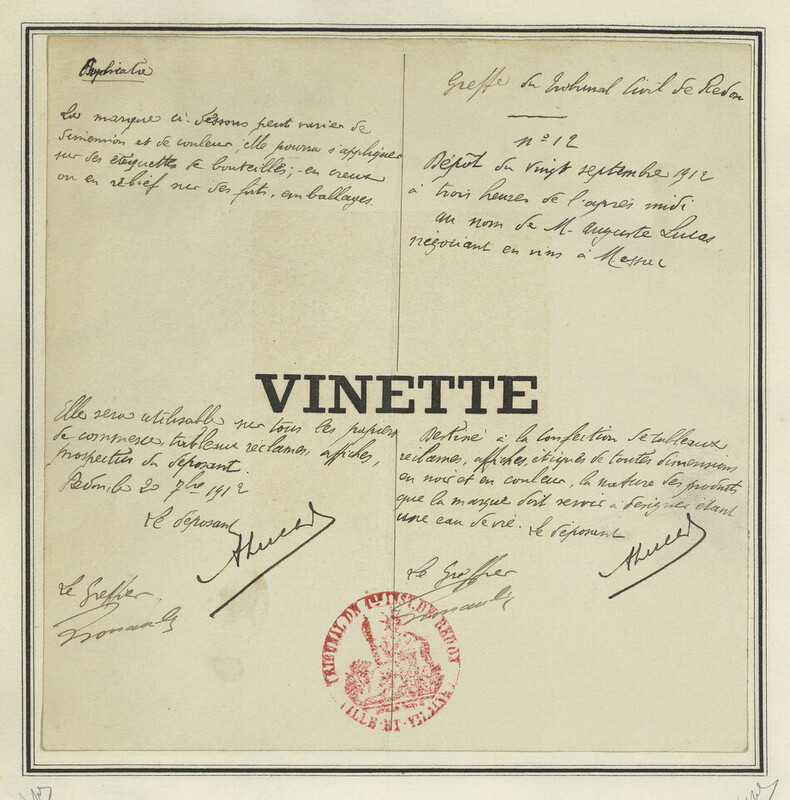 Duplicata
La marque ci-dessous peut varier de
dimension et de couleur, elle pourra s'appliquer
sur des étiquettes de bouteilles; en creux
ou en relief sur des futs, emballages.
Greffe du Tribunal Civil de Redon
nº 12
Dépôt du vingt septembre 1912
à trois heures de l'après midi
au nom de M. Auguste Lucas
négociant en vins à Messac
VINETTE
Elle sera utilisable sur tous les papiers
de commerce, tableaux réclames, affiches,
prospectus du déposant.
Redon, le 20 7bre 1912
Le déposant
ALucas
Le Greffier
Destiné à la confection de tableaux
réclames, affiches, étiques de toutes dimensions
en noir et en couleur, la nature des produits
que la marque doit servir à désigner étant
une eau de vie. Le déposant
ALucas
Le Greffier
TRIBUNAL DE 1re INST. DE REDON
ILLE-ET-VILAINE